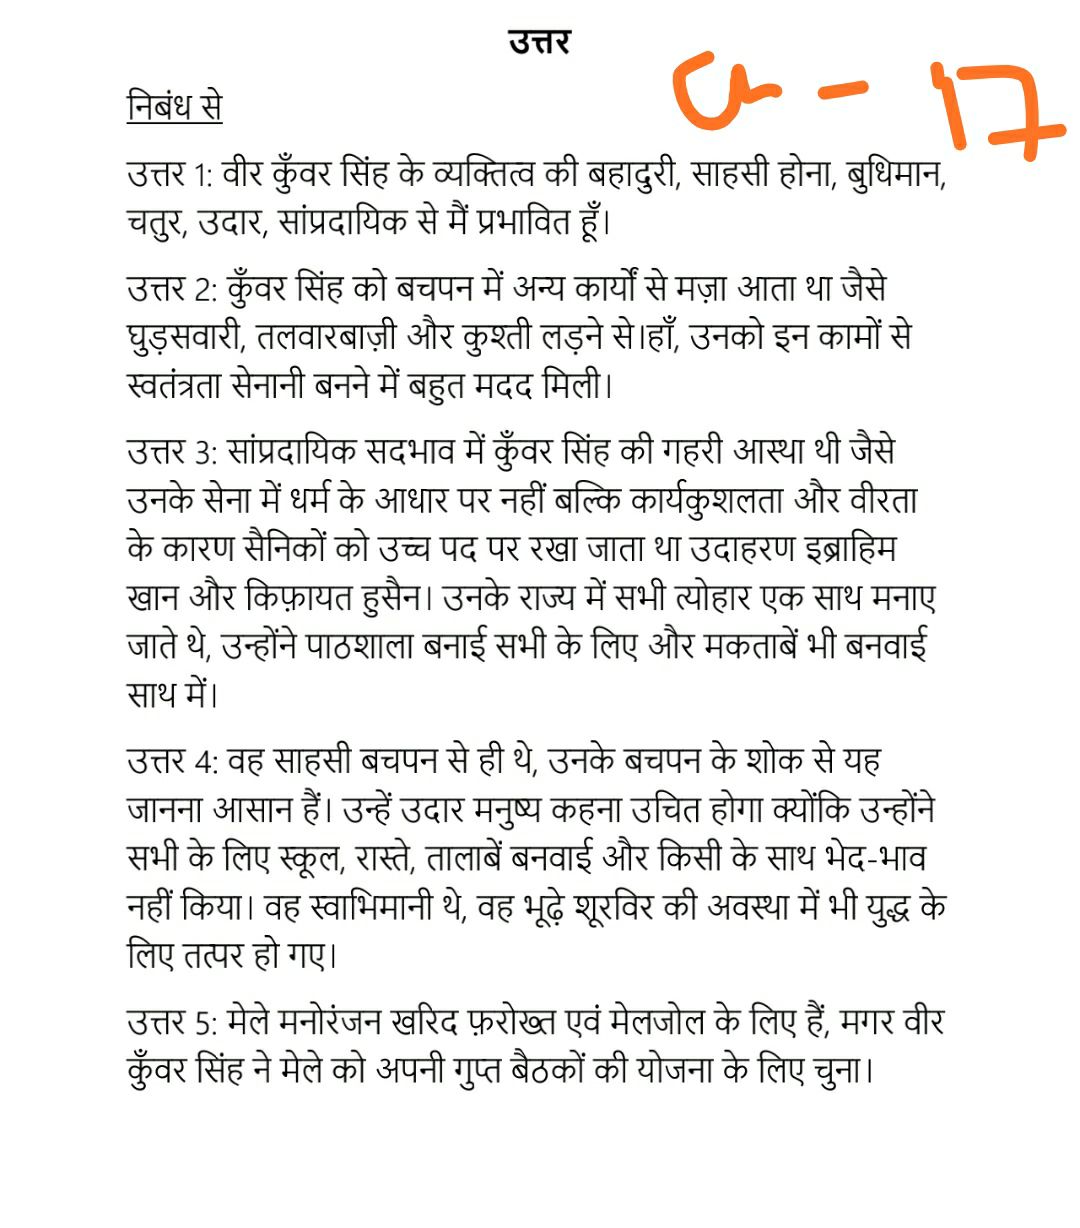 उत्तर
Ch - 17
निबंध से
उत्तर 1: वीर कुँवर सिंह के व्यक्तित्व की बहादुरी, साहसी होना, बुधिमान,
चतुर, उदार, सांप्रदायिक से मैं प्रभावित हूँ।
उत्तर 2: कुँवर सिंह को बचपन में अन्य कार्यों से मज़ा आता था जैसे
घुड़सवारी, तलवारबाज़ी और कुश्ती लड़ने से।हाँ, उनको इन कामों से
स्वतंत्रता सेनानी बनने में बहुत मदद मिली।
उत्तर 3: सांप्रदायिक सदभाव में कुँवर सिंह की गहरी आस्था थी जैसे
उनके सेना में धर्म के आधार पर नहीं बल्कि कार्यकुशलता और वीरता
के कारण सैनिकों को उच्च पद पर रखा जाता था उदाहरण इब्राहिम
खान और किफ़ायत हुसैन। उनके राज्य में सभी त्योहार एक साथ मनाए
जाते थे, उन्होंने पाठशाला बनाई सभी के लिए और मकताबें भी बनवाई
साथ में।
उत्तर 4: वह साहसी बचपन से ही थे, उनके बचपन के शोक से यह
जानना आसान हैं। उन्हें उदार मनुष्य कहना उचित होगा क्योंकि उन्होंने
सभी के लिए स्कूल, रास्ते, तालाबें बनवाई और किसी के साथ भेद-भाव
नहीं किया। वह स्वाभिमानी थे, वह भूढ़े शूरविर की अवस्था में भी युद्ध के
लिए तत्पर हो गए।
उत्तर 5: मेले मनोरंजन खरिद फ़रोख्त एवं मेलजोल के लिए हैं, मगर वीर
कुँवर सिंह ने मेले को अपनी गुप्त बैठकों की योजना के लिए चुना।